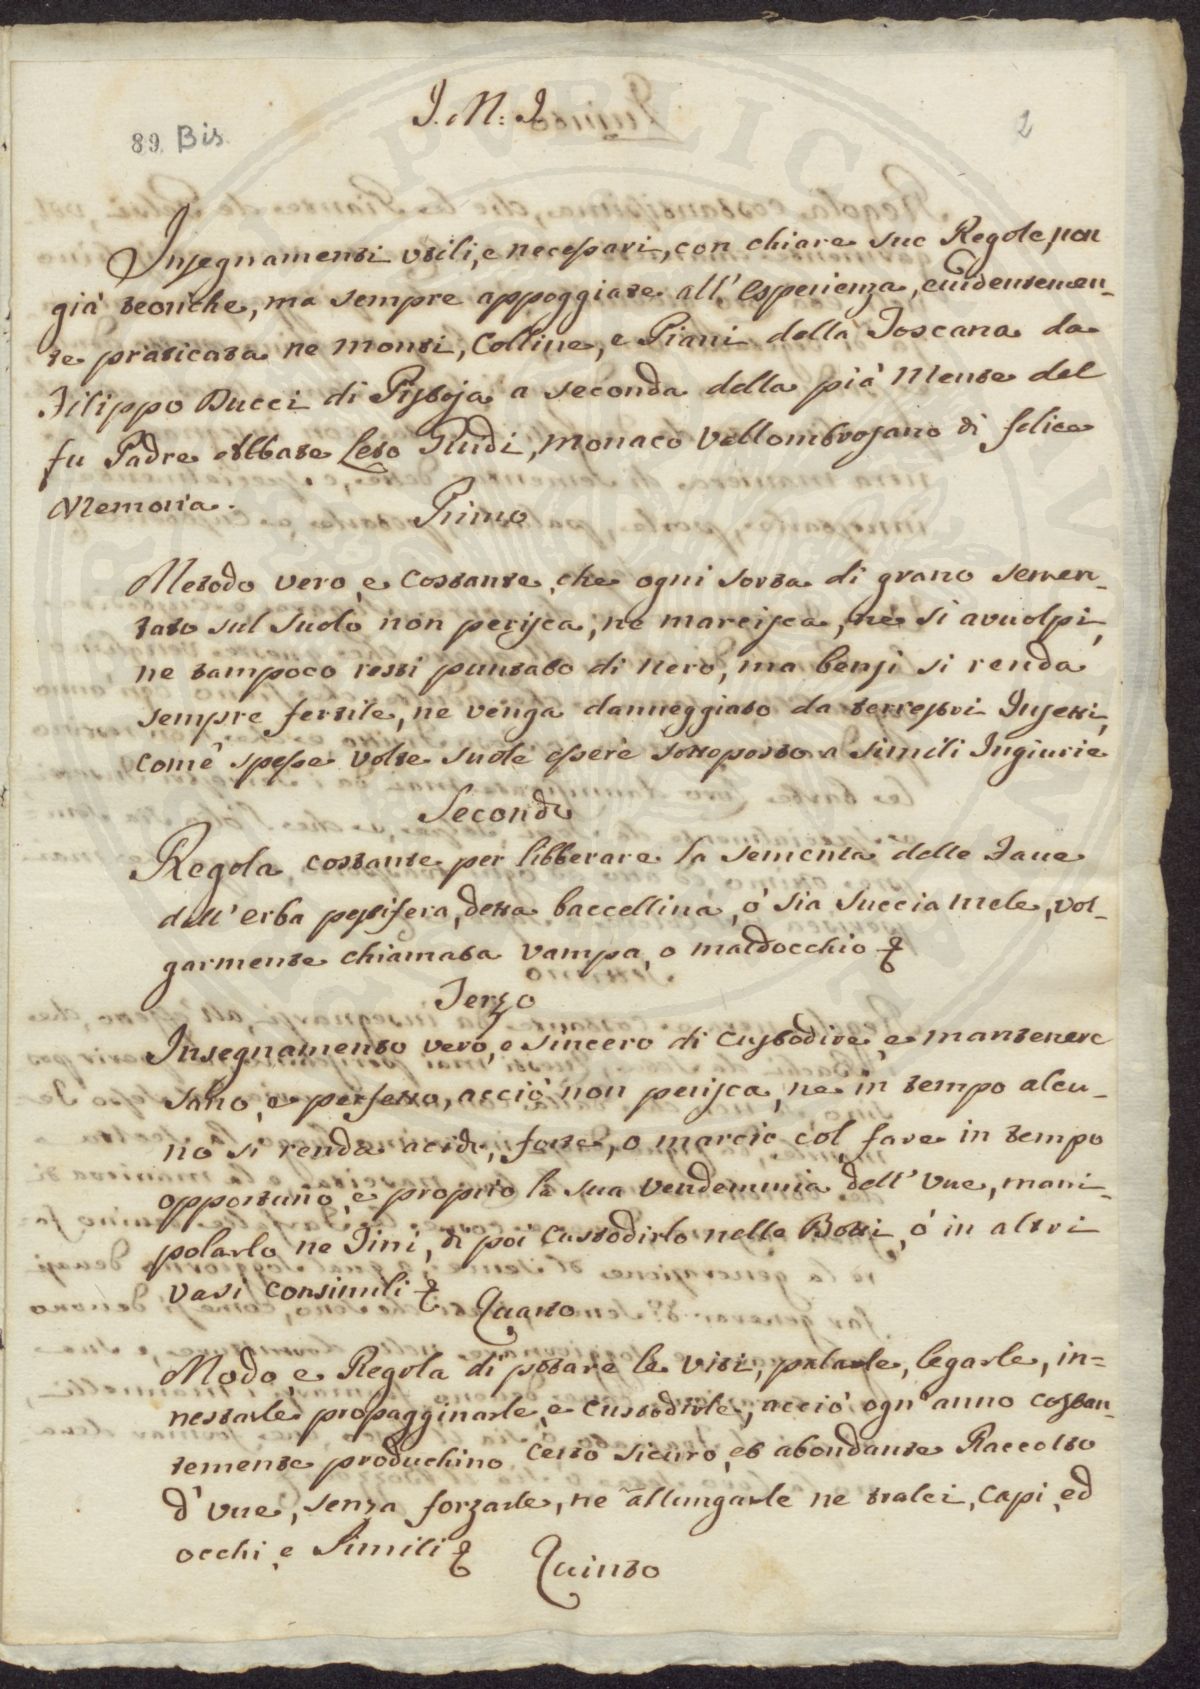 J. M: J
89. Bis.
2
Insegnamenti utili, e necessari, con chiare sue Regole, non
già teoriche, ma sempre appoggiate all'esperienza, evidentemen-
te praticata ne monti, Colline, e Piani della Toscana da
Filippo Bucci di Pistoja a seconda della pià Mente del
fu Padre Abbate Leto Guidi, Monaco Vallombrosano di felice
Memoria.
Primo
Metodo vero, e Costante, che ogni sorta di grano semen-
tato sul suolo non perisca, ne marcisca, ne si avvolpi,
ne tampoco resti puntato di nero, ma bensi si renda
sempre fertile, ne venga danneggiato da terrestri Insetti,
come spesse volte suole essere sottoposto a simili Ingiurie
Secondo
Regola costante per libberare la sementa delle Fave
dall'erba pestifera, detta baccellina, o' sia Succia mele, vol-
garmente chiamata vampa, o maldocchio
Terzo
Insegnamento vero, e sincero di custodire, e mantenere
Vino, e perfetto, acciò non perisca, ne in tempo alcu-
no si renda acido, forte, o marcio col fare in tempo
opportuno, e proprio la sua Vendemmia dell'Uve, mani-
polarlo ne Tini, di poi Custodirlo nelle Botti, o' in altri
vasi consimili
Quarto
Modo, e Regola di potare le viti, palarle, legarle, in=
nestarle propagginarle, e custodirle, acciò ogn'anno costan-
temente produchino certo sicuro, et abondante Raccolto
d'uve, senza forzarle, ne allungarle ne tralci, capi, ed
occhi, e Simili
Quinto